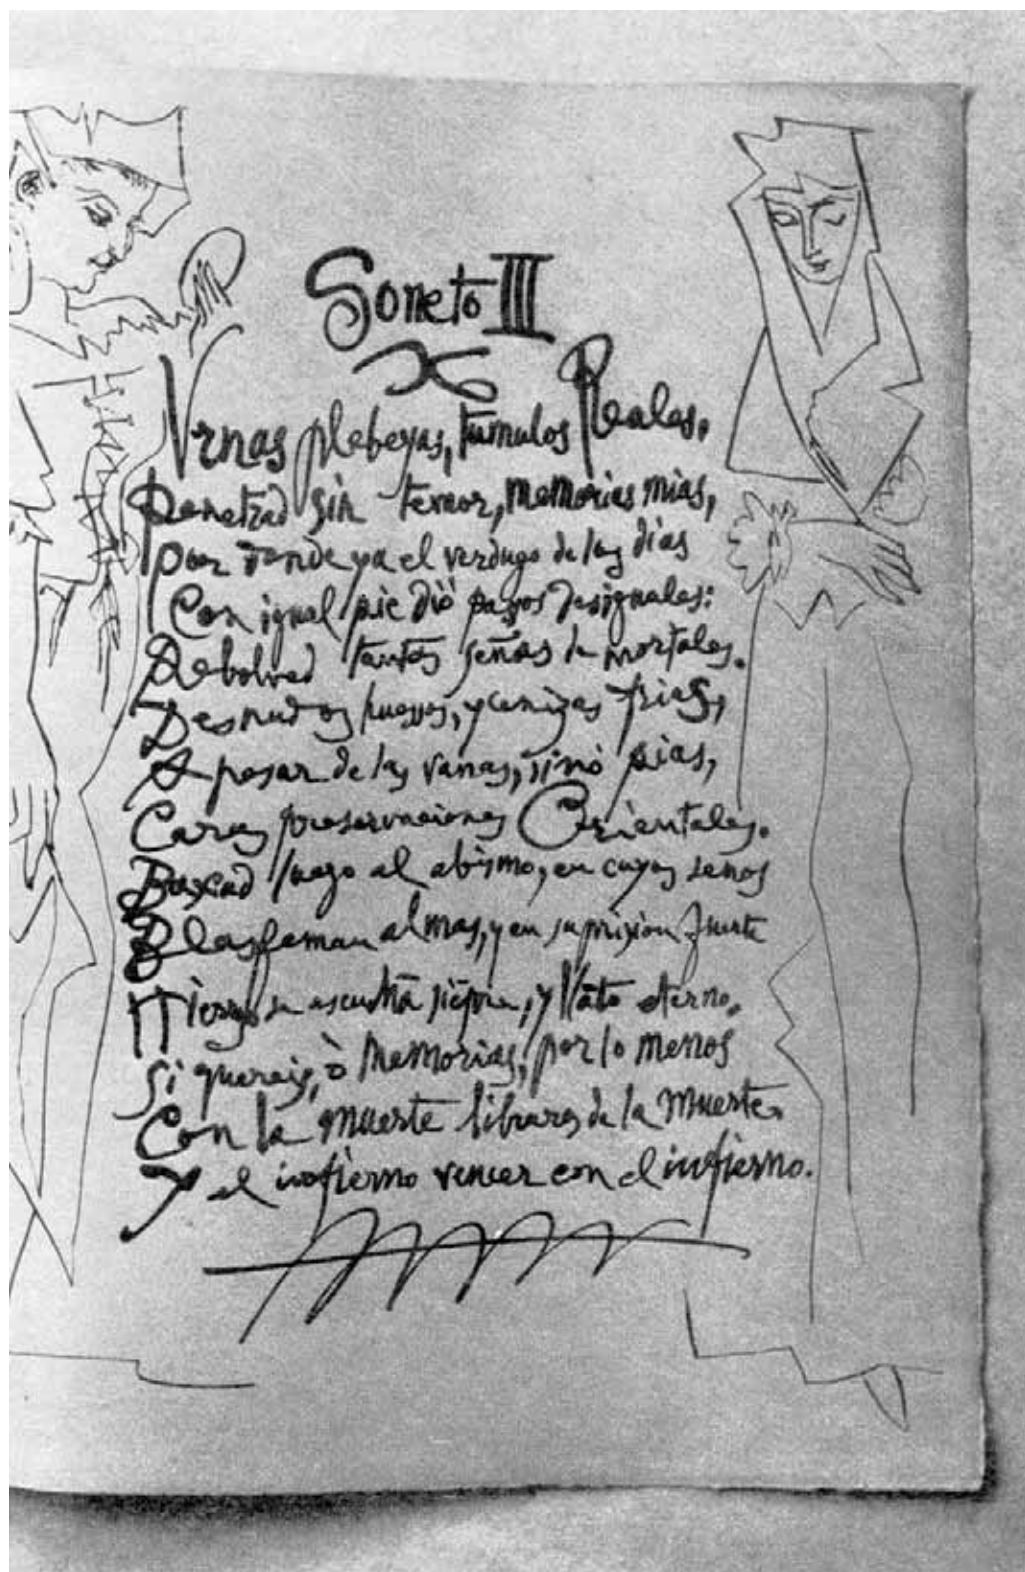 Soneto III
Vrnas plebeyas, tumulos Reales,
Penetrad sin temor, memorias mias,
Por donde ya el verdugo de los dias
Con igual pie diò pasos desiguales:
Rebolved tantas señas de mortales.
Desnudos huessos, y cenizas frias,
A pesar de las vanas, sinò pias,
Caras preservaciones Orientales.
Baxad luego al abismo, en cuyos senos
Blasfeman almas, y en su prixion fuerte
Hierros se escuchã siẽpre, y llãto eterno.
Si quereis, ò memorias, por lo menos
Con la muerte libraros de la muerte.
Y el infierno vencer con el infierno.